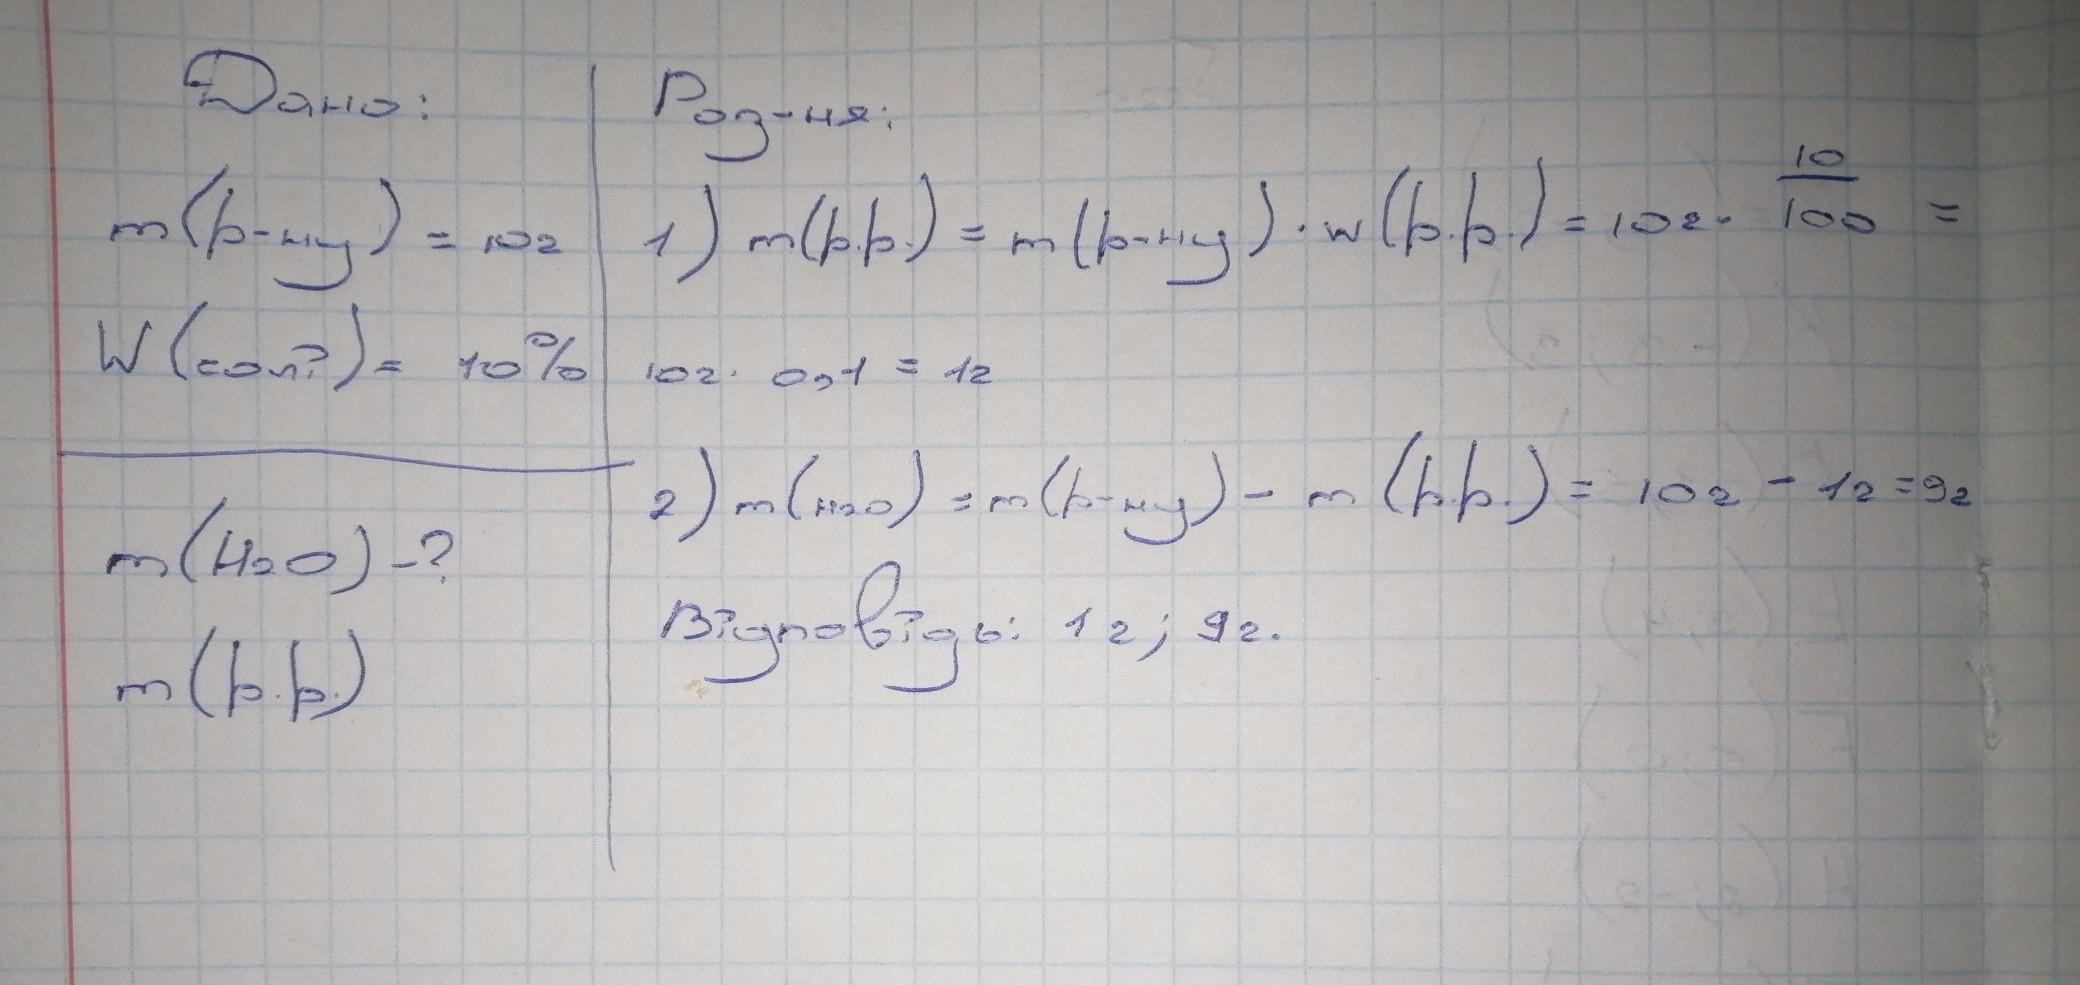 Дано:
m(р-ну) = 10г
W(солі) = 10%
m(H2O) - ?
m(р.р.)
Роз-ня:
1) m(р.р.) = m(р-ну) · w(р.р.) = 10г · 10/100 =
10г · 0,1 = 1г
2) m(H2O) = m(р-ну) - m(р.р.) = 10г - 1г = 9г
Відповідь: 1г; 9г.